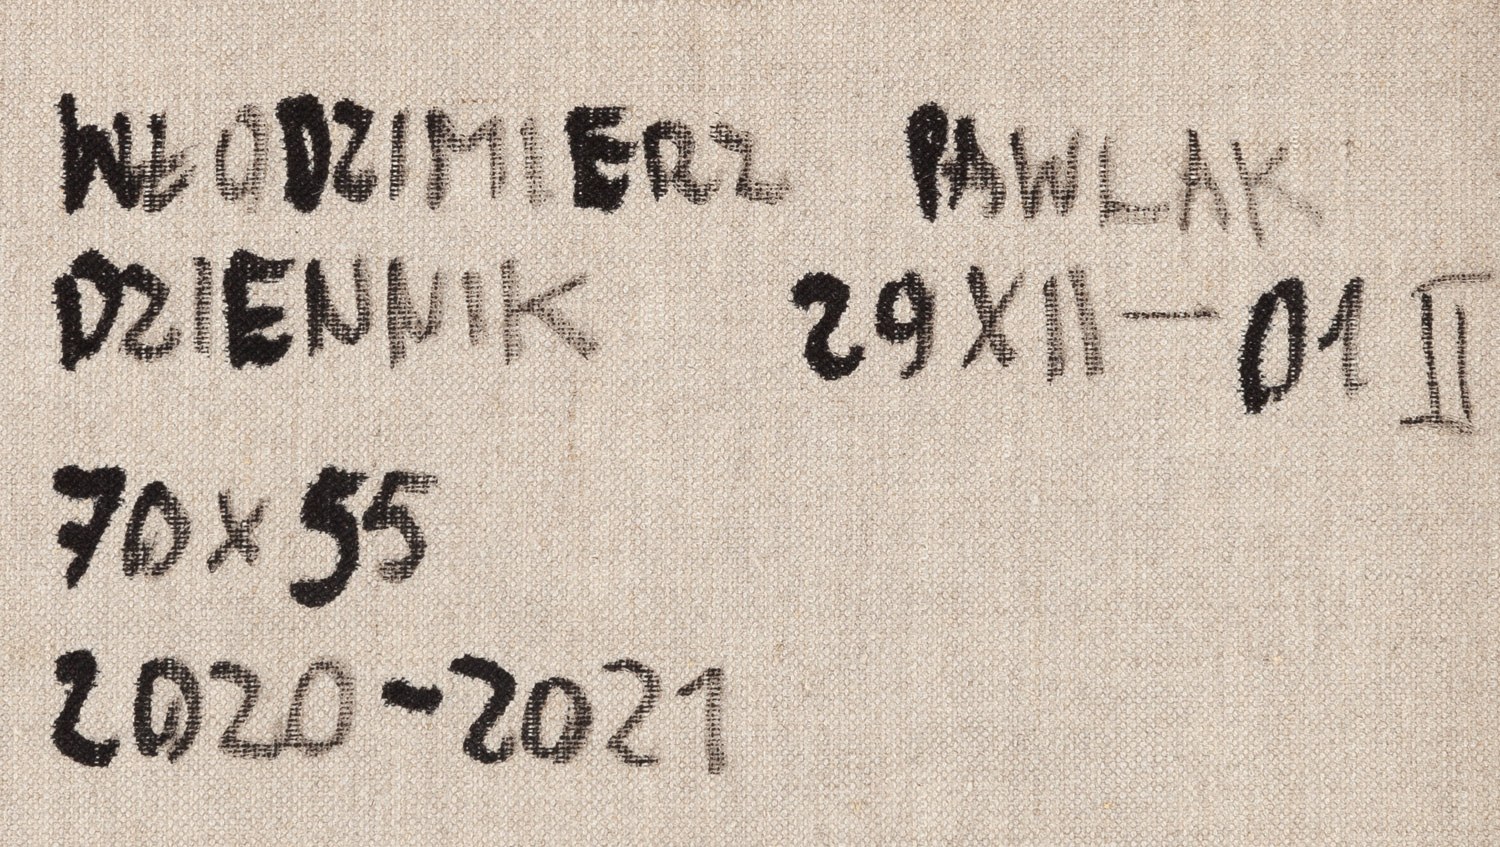 WŁODZIMIERZ PAWLAK
DZIENNIK 29 XII — 01 II
70 x 55
2020 - 2021